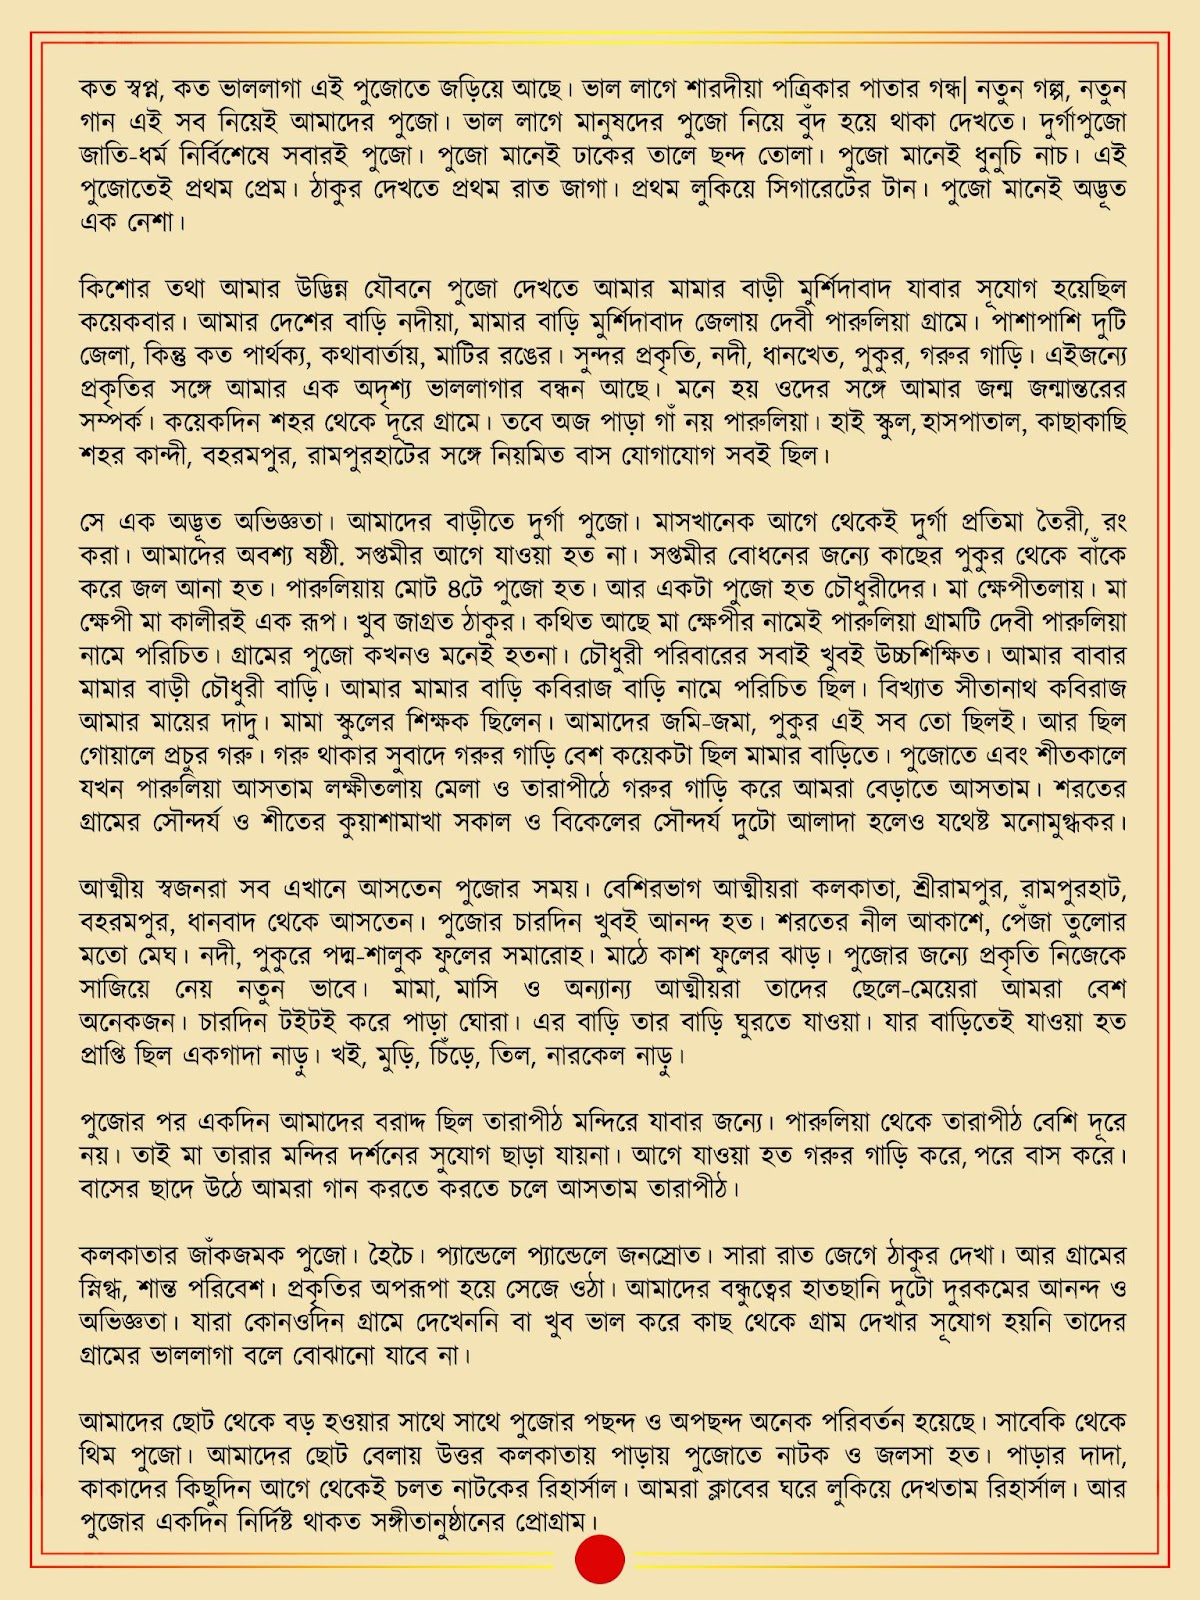 কত স্বপ্ন, কত ভাললাগা এই পুজোতে জড়িয়ে আছে। ভাল লাগে শারদীয়া পত্রিকার পাতার গন্ধ| নতুন গল্প, নতুন
গান এই সব নিয়েই আমাদের পুজো। ভাল লাগে মানুষদের পুজো নিয়ে বুঁদ হয়ে থাকা দেখতে। দুর্গাপুজো
জাতি-ধর্ম নির্বিশেষে সবারই পুজো। পুজো মানেই ঢাকের তালে ছন্দ তোলা। পুজো মানেই ধুনুচি নাচ। এই
পুজোতেই প্রথম প্রেম। ঠাকুর দেখতে প্রথম রাত জাগা। প্রথম লুকিয়ে সিগারেটের টান। পুজো মানেই অদ্ভূত
এক নেশা।
কিশোর তথা আমার উদ্ভিন্ন যৌবনে পুজো দেখতে আমার মামার বাড়ী মুর্শিদাবাদ যাবার সূযোগ হয়েছিল
কয়েকবার। আমার দেশের বাড়ি নদীয়া, মামার বাড়ি মুর্শিদাবাদ জেলায় দেবী পারুলিয়া গ্রামে। পাশাপাশি দুটি
জেলা, কিন্তু কত পার্থক্য, কথাবার্তায়, মাটির রঙের। সুন্দর প্রকৃতি, নদী, ধানখেত, পুকুর, গরুর গাড়ি। এইজন্যে
প্রকৃতির সঙ্গে আমার এক অদৃশ্য ভাললাগার বন্ধন আছে। মনে হয় ওদের সঙ্গে আমার জন্ম জন্মান্তরের
সম্পর্ক। কয়েকদিন শহর থেকে দূরে গ্রামে। তবে অজ পাড়া গাঁ নয় পারুলিয়া। হাই স্কুল, হাসপাতাল, কাছাকাছি
শহর কান্দী, বহরমপুর, রামপুরহাটের সঙ্গে নিয়মিত বাস যোগাযোগ সবই ছিল।
সে এক অদ্ভূত অভিজ্ঞতা। আমাদের বাড়ীতে দুর্গা পুজো। মাসখানেক আগে থেকেই দুর্গা প্রতিমা তৈরী, রং
করা। আমাদের অবশ্য ষষ্ঠী. সপ্তমীর আগে যাওয়া হত না। সপ্তমীর বোধনের জন্যে কাছের পুকুর থেকে বাঁকে
করে জল আনা হত। পারুলিয়ায় মোট ৪টে পুজো হত। আর একটা পুজো হত চৌধুরীদের। মা ক্ষেপীতলায়। মা
ক্ষেপী মা কালীরই এক রূপ। খুব জাগ্রত ঠাকুর। কথিত আছে মা ক্ষেপীর নামেই পারুলিয়া গ্রামটি দেবী পারুলিয়া
নামে পরিচিত। গ্রামের পুজো কখনও মনেই হতনা। চৌধুরী পরিবারের সবাই খুবই উচ্চশিক্ষিত। আমার বাবার
মামার বাড়ী চৌধুরী বাড়ি। আমার মামার বাড়ি কবিরাজ বাড়ি নামে পরিচিত ছিল। বিখ্যাত সীতানাথ কবিরাজ
আমার মায়ের দাদু। মামা স্কুলের শিক্ষক ছিলেন। আমাদের জমি-জমা, পুকুর এই সব তো ছিলই। আর ছিল
গোয়ালে প্রচুর গরু। গরু থাকার সুবাদে গরুর গাড়ি বেশ কয়েকটা ছিল মামার বাড়িতে। পুজোতে এবং শীতকালে
যখন পারুলিয়া আসতাম লক্ষীতলায় মেলা ও তারাপীঠে গরুর গাড়ি করে আমরা বেড়াতে আসতাম। শরতের
গ্রামের সৌন্দর্য ও শীতের কুয়াশামাখা সকাল ও বিকেলের সৌন্দর্য দুটো আলাদা হলেও যথেষ্ট মনোমুগ্ধকর।
আত্মীয় স্বজনরা সব এখানে আসতেন পুজোর সময়। বেশিরভাগ আত্মীয়রা কলকাতা, শ্রীরামপুর, রামপুরহাট,
বহরমপুর, ধানবাদ থেকে আসতেন। পুজোর চারদিন খুবই আনন্দ হত। শরতের নীল আকাশে, পেঁজা তুলোর
মতো মেঘ। নদী, পুকুরে পদ্ম-শালুক ফুলের সমারোহ। মাঠে কাশ ফুলের ঝাড়। পুজোর জন্যে প্রকৃতি নিজেকে
সাজিয়ে নেয় নতুন ভাবে। মামা, মাসি ও অন্যান্য আত্মীয়রা তাদের ছেলে-মেয়েরা আমরা বেশ
অনেকজন। চারদিন টইটই করে পাড়া ঘোরা। এর বাড়ি তার বাড়ি ঘুরতে যাওয়া। যার বাড়িতেই যাওয়া হত
প্রাপ্তি ছিল একগাদা নাড়ু। খই, মুড়ি, চিঁড়ে, তিল, নারকেল নাড়ু।
পুজোর পর একদিন আমাদের বরাদ্দ ছিল তারাপীঠ মন্দিরে যাবার জন্যে। পারুলিয়া থেকে তারাপীঠ বেশি দূরে
নয়। তাই মা তারার মন্দির দর্শনের সুযোগ ছাড়া যায়না। আগে যাওয়া হত গরুর গাড়ি করে, পরে বাস করে।
বাসের ছাদে উঠে আমরা গান করতে করতে চলে আসতাম তারাপীঠ।
কলকাতার জাঁকজমক পুজো। হৈচৈ। প্যান্ডেলে প্যান্ডেলে জনস্রোত। সারা রাত জেগে ঠাকুর দেখা। আর গ্রামের
স্নিগ্ধ, শান্ত পরিবেশ। প্রকৃতির অপরূপা হয়ে সেজে ওঠা। আমাদের বন্ধুত্বের হাতছানি দুটো দুরকমের আনন্দ ও
অভিজ্ঞতা। যারা কোনওদিন গ্রামে দেখেননি বা খুব ভাল করে কাছ থেকে গ্রাম দেখার সূযোগ হয়নি তাদের
গ্রামের ভাললাগা বলে বোঝানো যাবে না।
আমাদের ছোট থেকে বড় হওয়ার সাথে সাথে পুজোর পছন্দ ও অপছন্দ অনেক পরিবর্তন হয়েছে। সাবেকি থেকে
থিম পুজো। আমাদের ছোট বেলায় উত্তর কলকাতায় পাড়ায় পুজোতে নাটক ও জলসা হত। পাড়ার দাদা,
কাকাদের কিছুদিন আগে থেকেই চলত নাটকের রিহার্সাল। আমরা ক্লাবের ঘরে লুকিয়ে দেখতাম রিহার্সাল। আর
পুজোর একদিন নির্দিষ্ট থাকত সঙ্গীতানুষ্ঠানের প্রোগ্রাম।